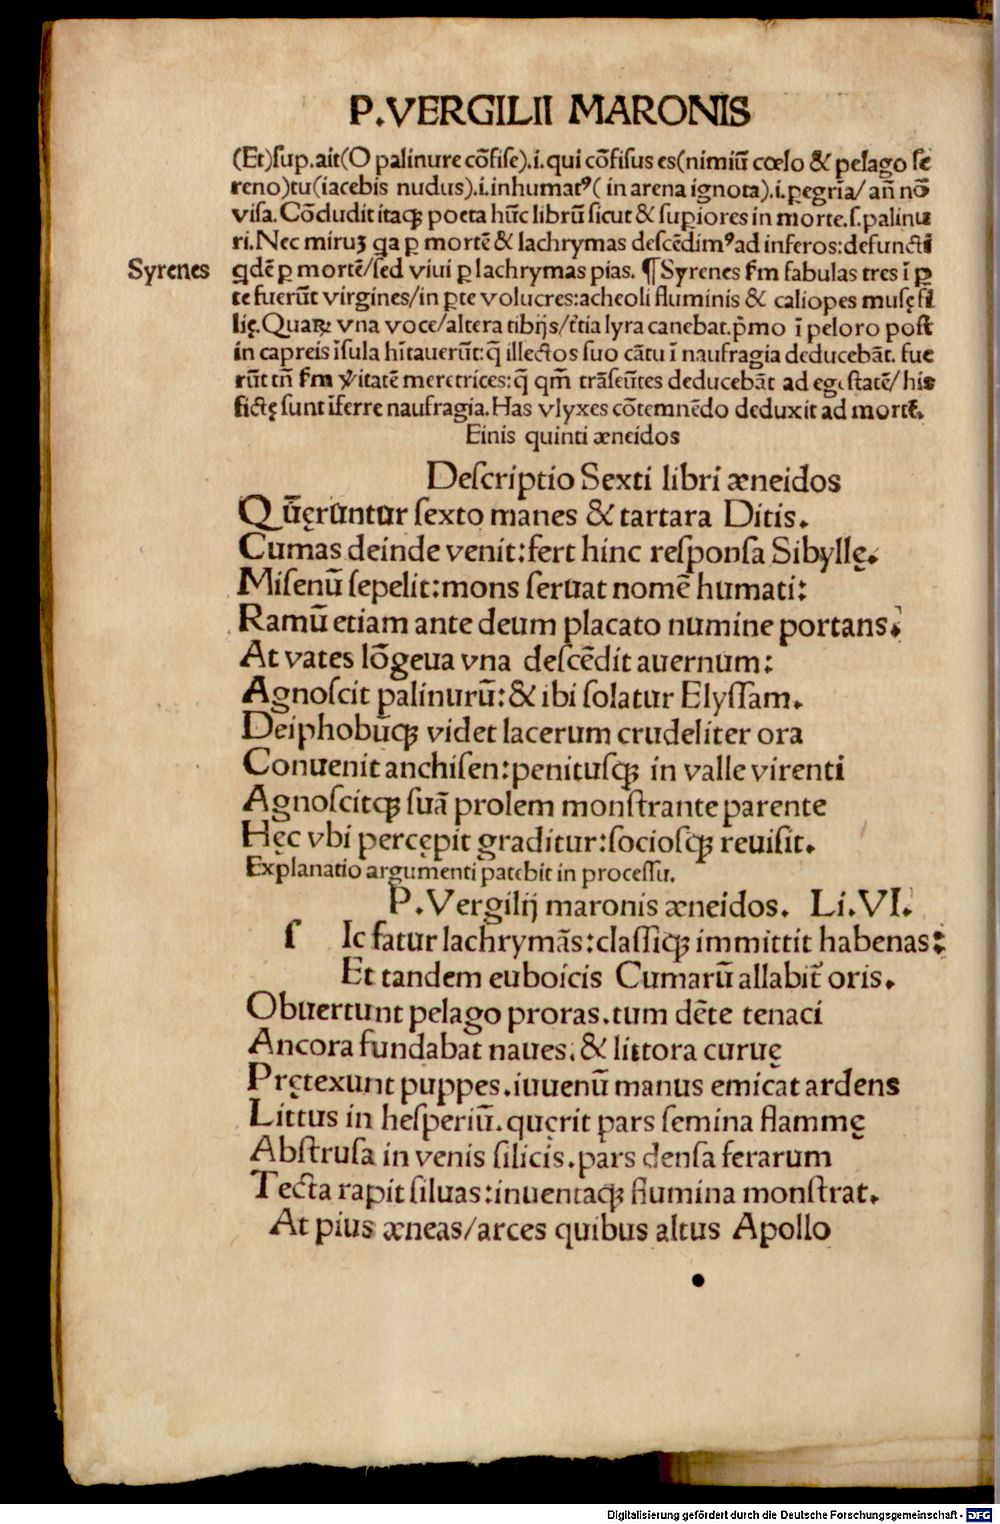 P.VERGILII MARONIS
(Et)ſup.ait(O palinure cõfiſe).i.qui cõfiſus es(nimiũ cœlo & pelago ſe
reno)tu(iacebis nudus).i.inhumatꝰ( in arena ignota).i.ꝑegrĩa/ añ nõ
viſa.Cõcludit itaqꝫ poeta hũc librũ ſicut & ſuꝑiores in morte.ſ.palinu
ri.Nec miruꝫ qa ꝑ mortẽ & lachrymas deſcẽdimꝰ ad inferos:defuncti
Syrenes
qdẽ ꝑ mortẽ/ſed viui ꝑ lachrymas pias. ¶Syrenes ẜm fabulas tres ĩ ꝑ
te fuerũt virgines/in ꝑte volucres:acheoli fluminis & caliopes muſę fi
lię.Quaꝝ vna voce/altera tibijs/t̃tia lyra canebat.p̃mo ĩ peloro poſt
in capreis ĩſula hĩtauerũt:q̃ illectos ſuo cãtu ĩ naufragia deducebãt. fue
rũt tñ ẜm ṽitatẽ meretrices:q̃ qm̃ trãſeũtes deducebãt ad egeſtatẽ/ his
fictę ſunt ĩferre naufragia.Has vlyxes cõtemnẽdo deduxit ad mortẽ.
Einis quinti æneidos
Deſcriptio Sexti libri æneidos
Qũęruntur ſexto manes & tartara Ditis.
Cumas deinde venit:fert hinc reſponſa Sibyllę.
Miſenũ ſepelit:mons ſeruat nomẽ humati:
Ramũ etiam ante deum placato numine portans.
At vates lõgeua vna deſcẽdit auernum:
Agnoſcit palinurũ:& ibi ſolatur Elyſſam.
Deiphobũqꝫ videt lacerum crudeliter ora
Conuenit anchiſen:penituſqꝫ in valle virenti
Agnoſcitqꝫ ſuã prolem monſtrante parente
Hęc vbi percępit graditur:ſocioſqꝫ reuiſit.
Explanatio argumenti patebit in proceſſu.
P.Vergilij maronis æneidos. Li.VI.
ſ Ic fatur lachrymãs:claſſiqꝫ immittit habenas:
Et tandem euboicis Cumarũ allabit̃ oris.
Obuertunt pelago proras.tum dẽte tenaci
Ancora fundabat naues.& littora curuę
Prętexunt puppes.iuuenũ manus emicat ardens
Littus in heſperiũ.quęrit pars ſemina flammę
Abſtruſa in venis ſilicis.pars denſa ferarum
Tecta rapit ſiluas:inuentaqꝫ flumina monſtrat.
At pius æneas/arces quibus altus Apollo
Digitalisierung gefördert durch die Deutsche Forschungsgemeinschaft - DFG